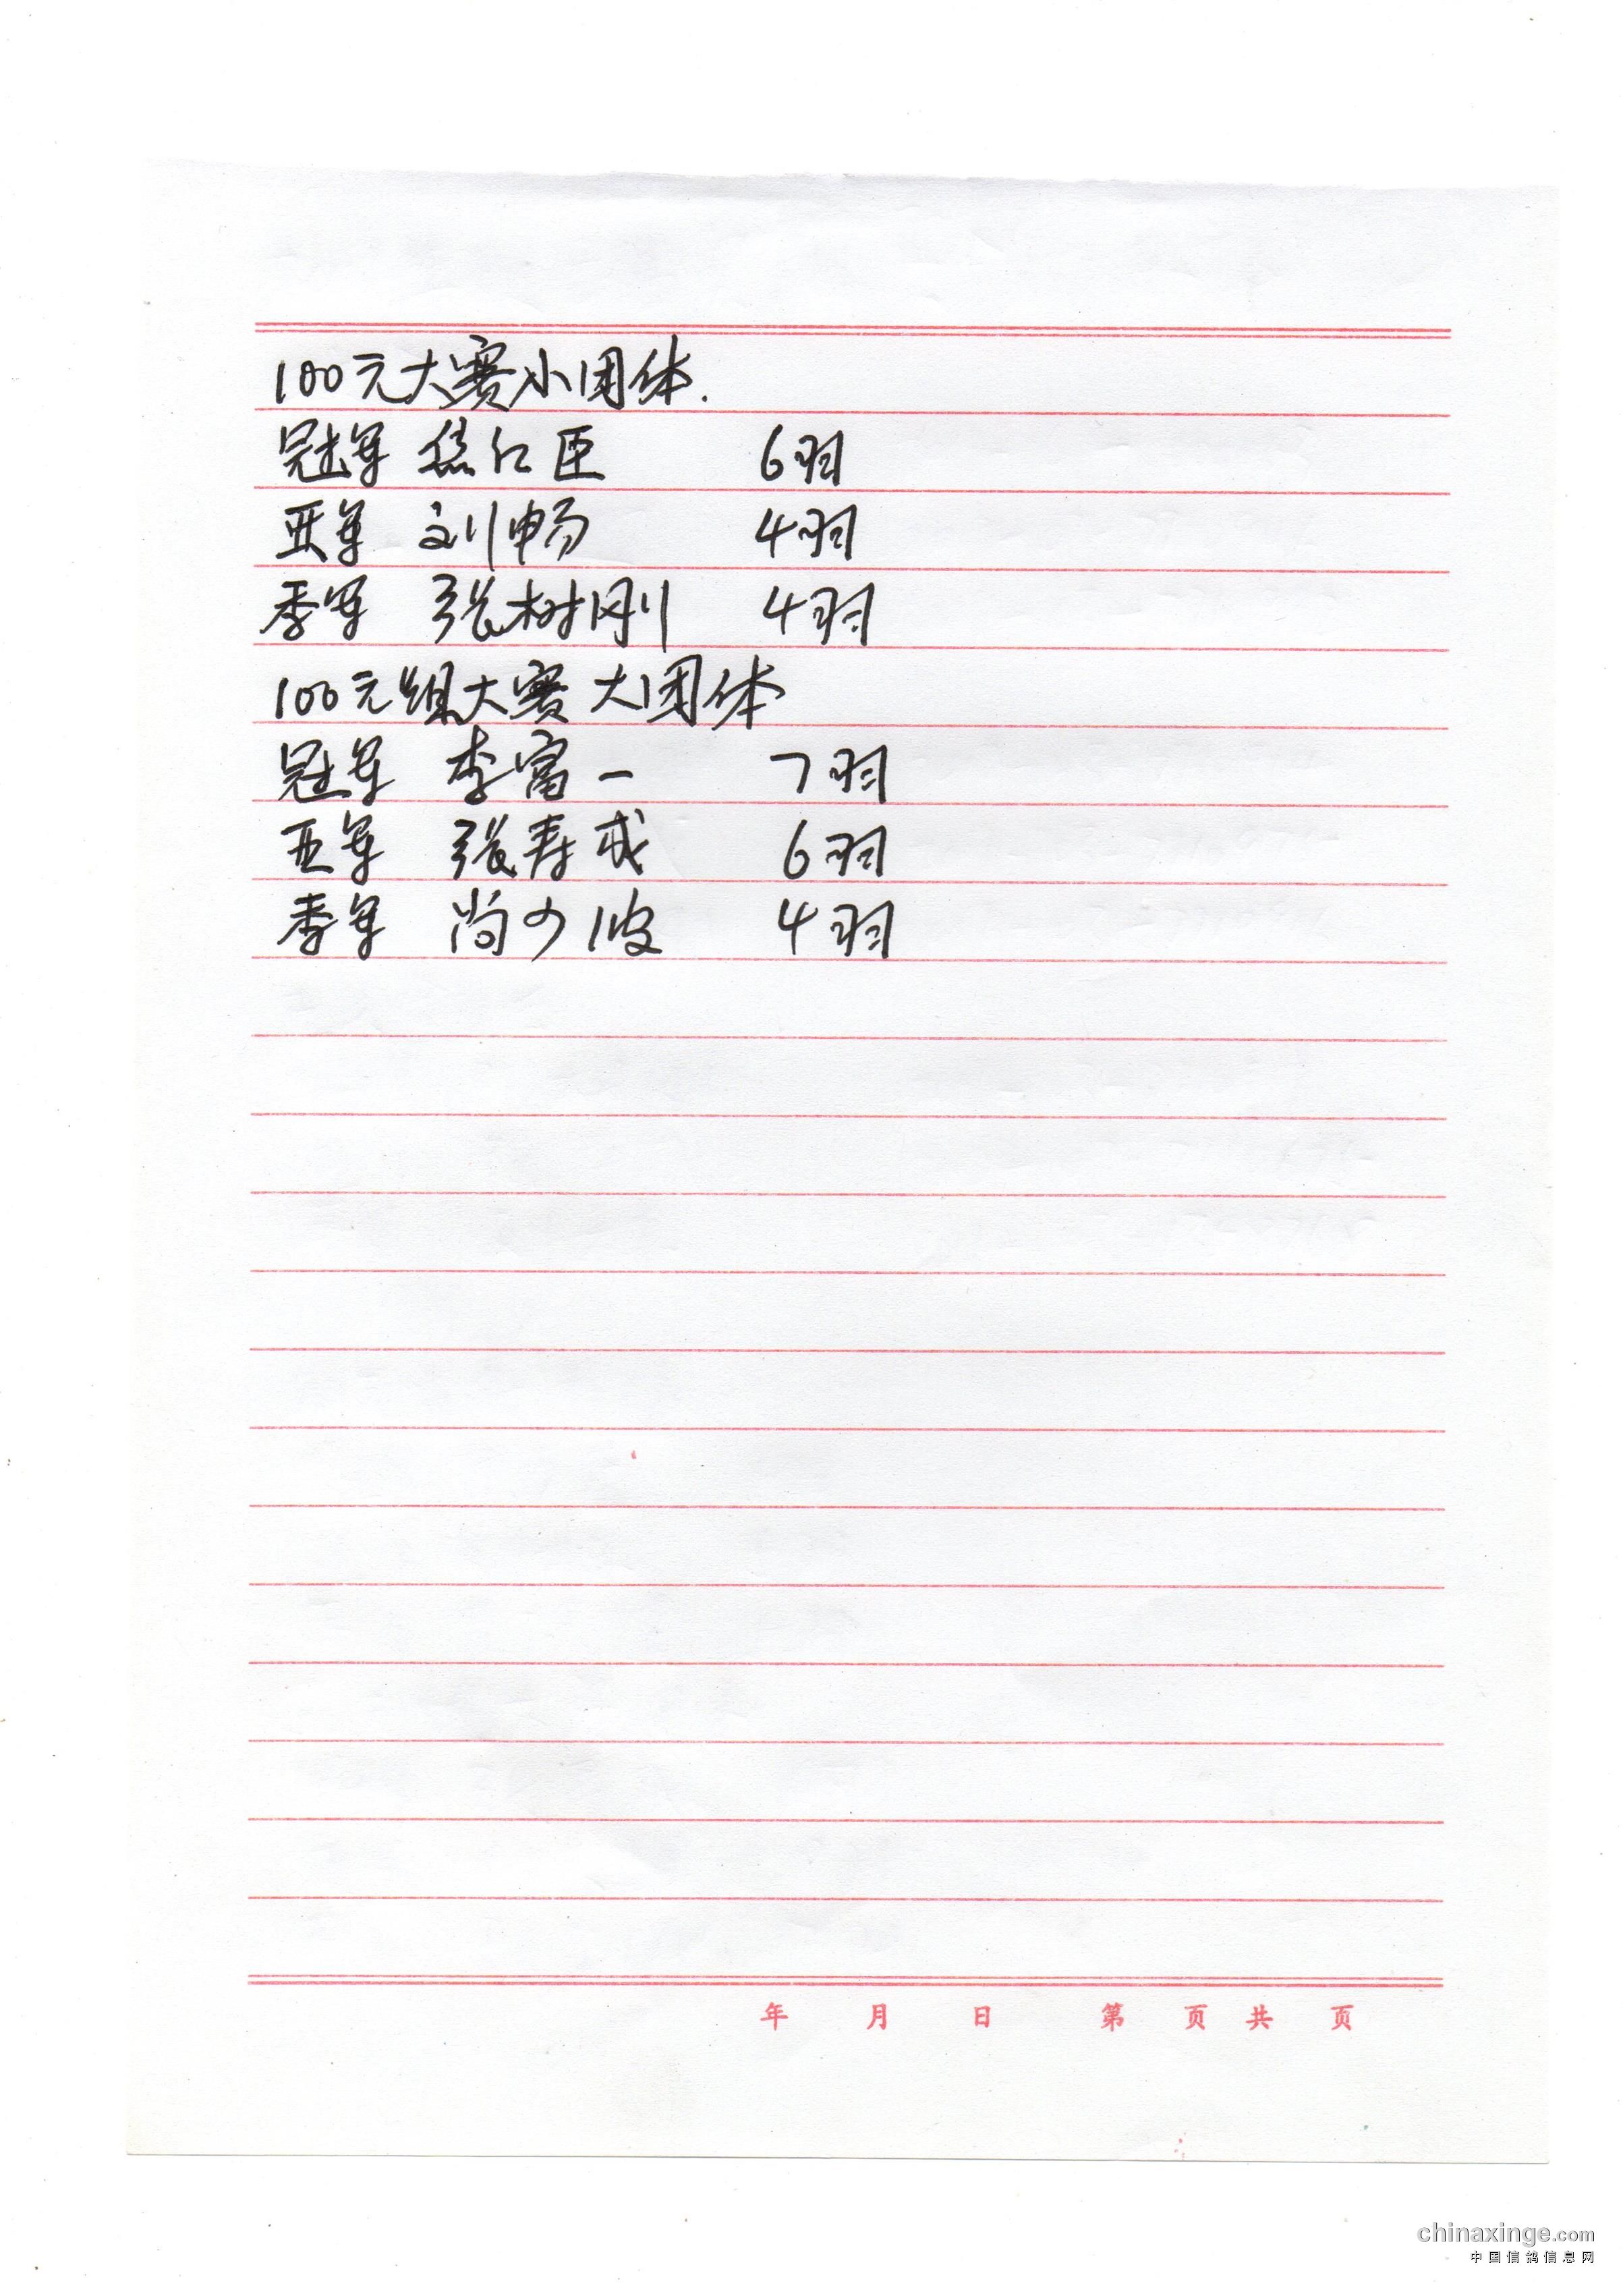 100元大赛小团体.
冠军 焦仁臣 6羽
亚军 刘畅 4羽
季军 张树刚 4羽
100元组大赛 大团体
冠军 李富一 7羽
亚军 张寿成 6羽
季军 尚少波 4羽
年 月 日 第 页 共 页
chinaxinge.com
中国信鸽信息网